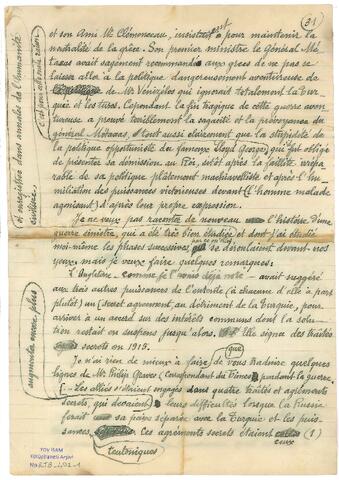 (31)
et son Ami Mr Clémenceau, insistent pour maintenir la
neutralité de la grèce. Son premier ministre le Général Mé-
taxas avait sagement recommandé aux grecs de ne pas se
laisser aller à la politique dangereusement aventureuse de
de Mr Vénizélos qui ignorait totalement la Tur-
quie et les turcs. Cependant la fin tragique de cette guerre aven-
tureuse a prouvé terriblement la sagacité et la prévoyance du
général Métaxas, et tout aussi clairement que la stupidité de
la politique opportuniste du fameux Lloyd George, qui fut obligé
de présenter sa démission, au Roi, sitôt après la faillite irrépa-
rable de sa politique platement machiavéliste et après l'hu-
miliation des puissances victorieuses devant (l'homme malade
agonisant) d'après leur propre expression.
Je ne veux pas raconter de nouveau l'histoire d'une
guerre sinistre, qui a été très bien étudiée et dont j'ai étudié
moi-même les phases successives, se déroulaient devant nos
yeux, mais je veux faire quelques remarques:
L'Angleterre, comme je l'avais déjà noté, avait suggéré
aux trois autres puissances de l'entente (à chacune d'elle à part
plutôt) un (secret agreement au détriment de la Turquie, pour
arriver à un accord sur des intérêts communs dont la solu-
tion restait en suspens jusqu'alors. Elle signa des traités
secrets en 1915.
Je n'ai rien de mieux à faire que de vous traduire quelques
lignes de Mr Philip Graves (Correspondant du Times) pendant la guerre.
(- Les alliés s'étaient engagés dans quatre traités et agréments
secrets, qui décrivaient leurs difficultés lorsque la Russie
ferait sa paix séparée avec la Turquie et les puis-
sances teutoniques. Ces agréments secrets étaient eux (1)
et enregistrée dans annales de l'humanité
civilisée
augmenter encore plus
TDV İSAM
Kütüphanesi Arşivi